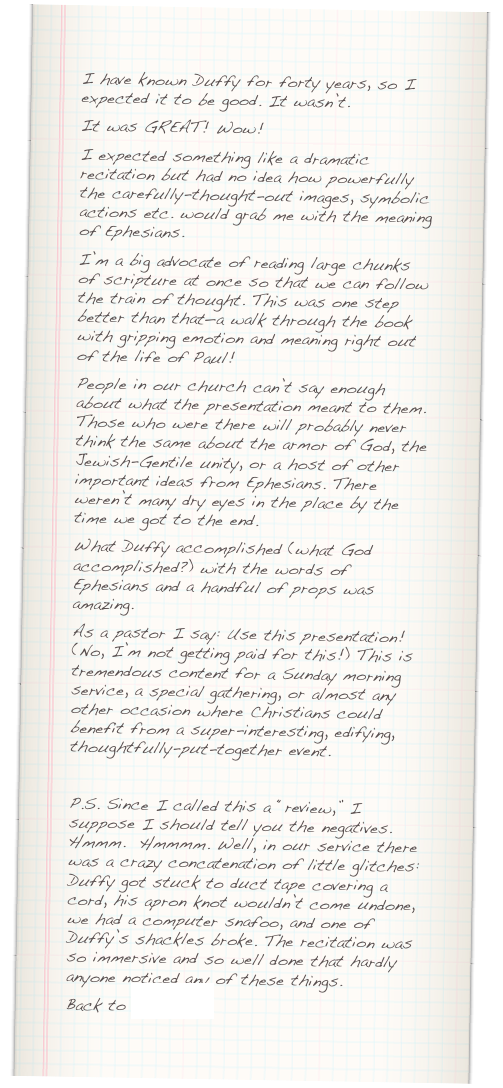 I have known Duffy for forty years, so I
expected it to be good. It wasn't.
It was GREAT! Wow!
I expected something like a dramatic
recitation but had no idea how powerfully
the carefully-thought-out images, symbolic
actions etc. would grab me with the meaning
of Ephesians.
I'm a big advocate of reading large chunks
of scripture at once so that we can follow
the train of thought. This was one step
better than that—a walk through the book
with gripping emotion and meaning right out
of the life of Paul!
People in our church can't say enough
about what the presentation meant to them.
Those who were there will probably never
think the same about the armor of God, the
Jewish-Gentile unity, or a host of other
important ideas from Ephesians. There
weren't many dry eyes in the place by the
time we got to the end.
What Duffy accomplished (what God
accomplished?) with the words of
Ephesians and a handful of props was
amazing.
As a pastor I say: Use this presentation!
(No, I'm not getting paid for this!) This is
tremendous content for a Sunday morning
service, a special gathering, or almost any
other occasion where Christians could
benefit from a super-interesting, edifying,
thoughtfully-put-together event.
P.S. Since I called this a "review," I
suppose I should tell you the negatives.
Hmmm. Hmmmm. Well, in our service there
was a crazy concatenation of little glitches:
Duffy got stuck to duct tape covering a
cord, his apron knot wouldn't come undone,
we had a computer snafoo, and one of
Duffy's shackles broke. The recitation was
so immersive and so well done that hardly
anyone noticed any of these things.
Back to